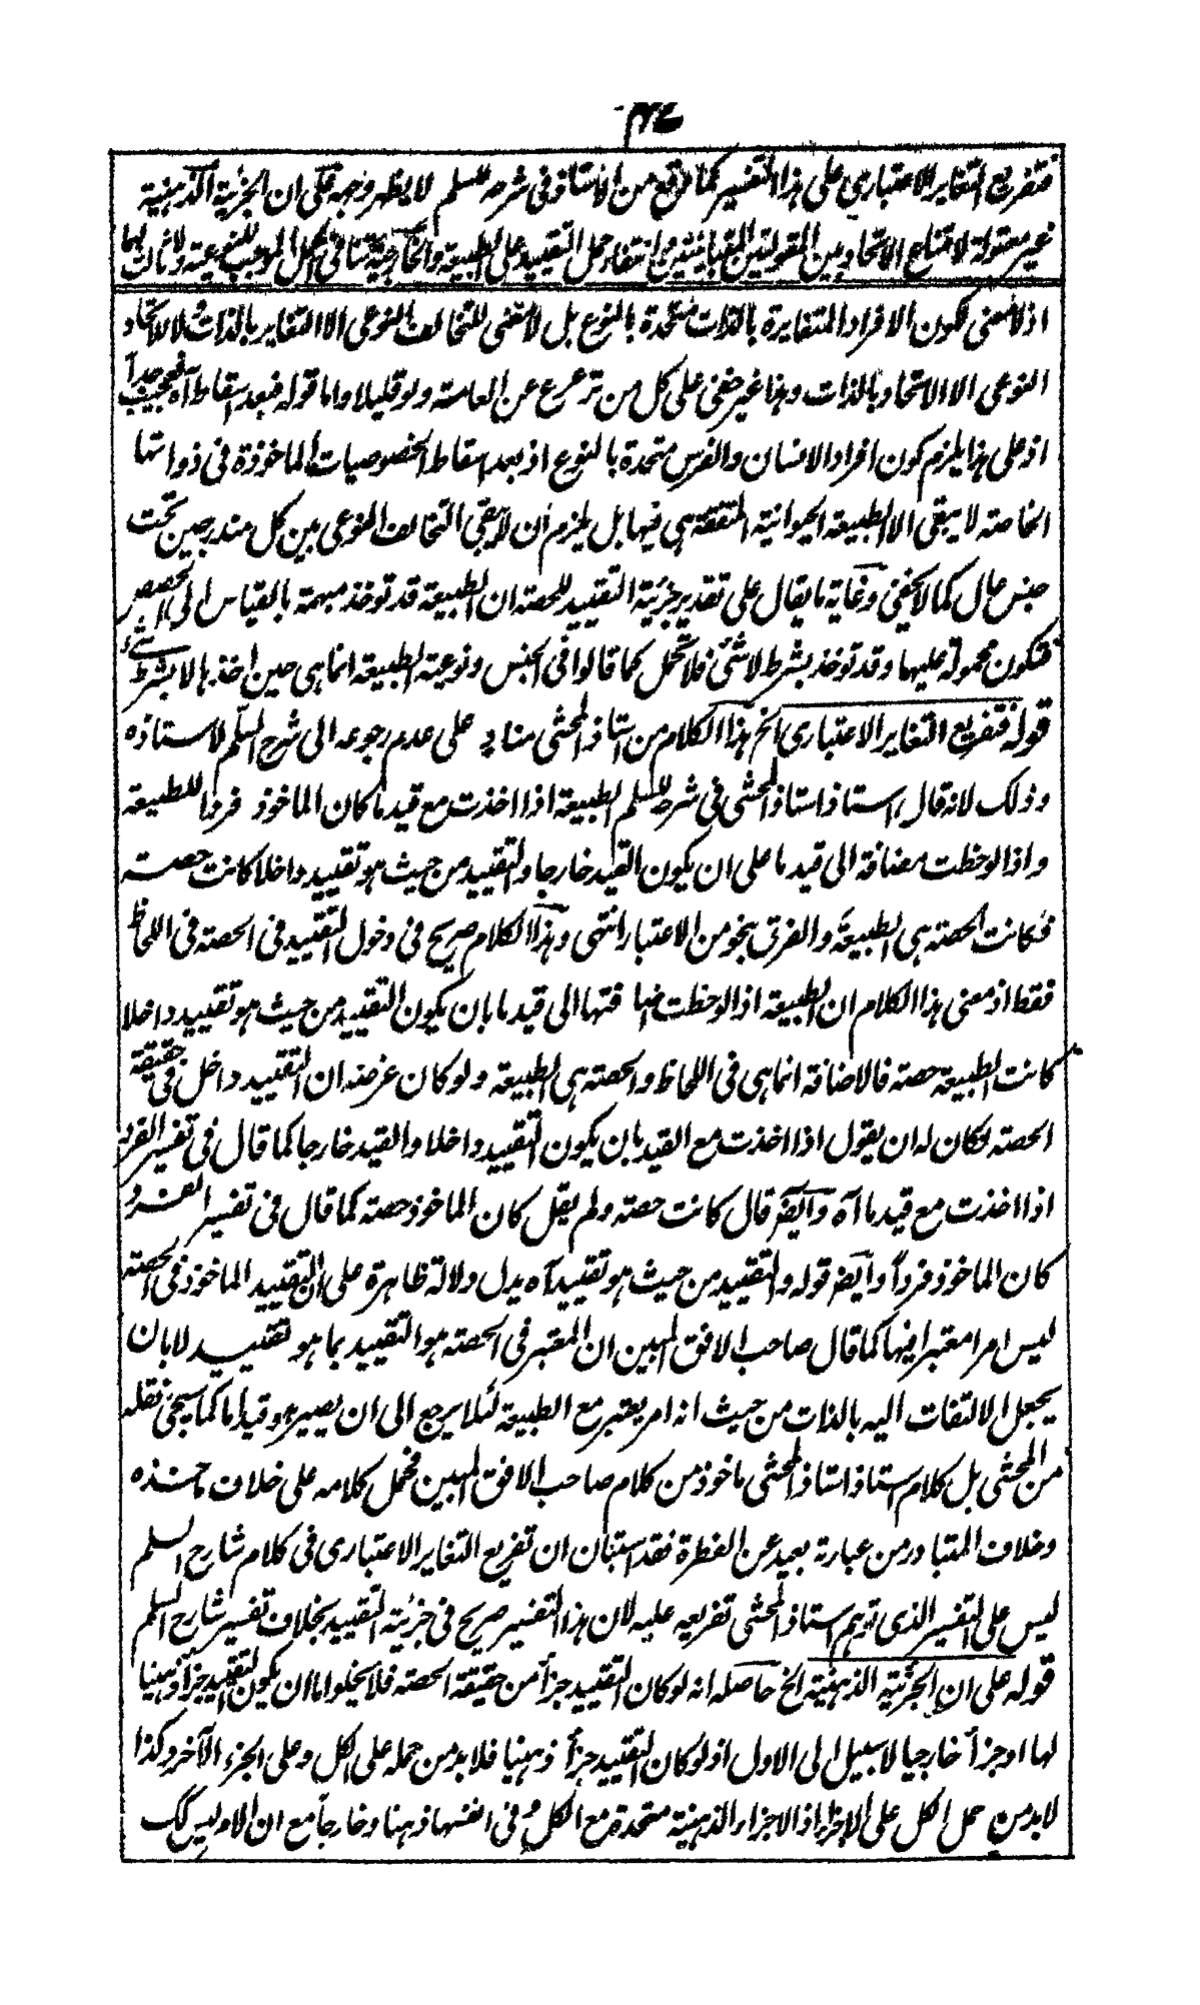 فتفريع التغاير الاعتباري على هذا التفسير كما وقع من الاستاذ فى شرحه للسلم لا يظهر وجهه على ان الجزئية الذهنية
غير معقولة لامتناع الاتحاد بين المقولتين المتبائنتين مع انتفاء حمل التقييد على الطبيعة والخارجية تنافى الحمل الموجب للنوعية ولا ثالث لهما
اذ لا معنى لكون الافراد المتغايرة بالذات متحدة بالنوع بل لا معنى للتخالف النوعى الا التغاير بالذات ولا للاتحاد
النوعى الا الاتحاد بالذات وهذا غير خفى على كل من ترعرع عن العامة ولو قليلا واما قوله فبعد اسقاط آه فعجيب جداً
اذ على هذا يلزم كون افراد الانسان والفرس متحدة بالنوع اذ بعد اسقاط الخصوصيات الماخوذة فى ذواتها
الخاصة لا يبقى الا الطبيعة الحيوانية المتفقة هى فيها بل يلزم ان لا يبقى التخالف النوعى بين كل مندرجين تحت
جنس عال كما لا يخفى وغاية ما يقال على تقدير جزئية التقييد للحصة ان الطبيعة قد توخذ مبهمة بالقياس الى الحصص
فتكون محمولة عليها وقد توخذ بشرط لا شئ فلا تحمل كما قالوا فى الجنس ونوعية الطبيعة انما هى حين اخذها لا بشرط شئ
قوله فتفريع التغاير الاعتبارى الخ هذا الكلام من استاذ المحشى مناد على عدم رجوعه الى شرح السلم لاستاذه
وذلك لانه قال استاذ استاذ المحشى فى شرحه للسلم الطبيعة اذا اخذت مع قيد ما كان الماخوذ فردا للطبيعة
واذا لوحظت مضافة الى قيد ما على ان يكون القيد خارجا والتقييد من حيث هو تقييد داخلا كانت حصة
فكانت الحصة هى الطبيعة والفرق بنحو من الاعتبار انتهى وهذا الكلام صريح فى دخول التقييد فى الحصة فى اللحاظ
فقط اذ معنى هذا الكلام ان الطبيعة اذا لوحظت اضافتها الى قيد ما بان يكون التقييد من حيث هو تقييد داخلا
كانت الطبيعة حصة فالاضافة انما هى فى اللحاظ والحصة هى الطبيعة ولو كان غرضه ان التقييد داخل فى حقيقة
الحصة لكان له ان يقول اذا اخذت مع القيد بان يكون التقييد داخلا والقيد خارجا كما قال فى تفسير الفرد
اذا اخذت مع قيد ما آه وايضا قال كانت حصة ولم يقل كان الماخوذ حصة كما قال فى تفسير الفرد
كان الماخوذ فرداً وايضا قوله والتقييد من حيث هو تقييد آه يدل دلالة ظاهرة على ان التقييد الماخوذ فى الحصة
ليس امرا معتبرا فيها كما قال صاحب الافق المبين ان المعتبر فى الحصة هو التقييد بما هو تقييد لا بان
يجعل الالتفات اليه بالذات من حيث انه امر يعتبر مع الطبيعة لئلا يرجع الى ان يصير هو قيدا ما كما سيجئ نقله
من المحشى بل كلام استاذ استاذ المحشى ماخوذ من كلام صاحب الافق المبين فحمل كلامه على خلاف ماخذه
وخلاف المتبادر من عبارته بعيد عن الفطرة فقد استبان ان تفريع التغاير الاعتبارى فى كلام شارح السلم
ليس على التفسير الذى توهم استاذ المحشى تفريعه عليه لان هذا التفسير صريح فى جزئية التقييد بخلاف تفسير شارح السلم
قوله على ان الجزئية الذهنية الخ حاصله انه لو كان التقييد جزأ من حقيقة الحصة فلا يخلو اما ان يكون التقييد جزأ ذهنيا
لها او جزأ خارجيا لا سبيل الى الاول اذ لو كان التقييد جزأ ذهنيا فلا بد من حمله على الكل وعلى الجزء الآخر وكذا
لا بد من حمل الكل على الاجزاء اذ الاجزاء الذهنية متحدة مع الكل وفى انفسها ذهنا وخارجاً مع ان الامر ليس كك